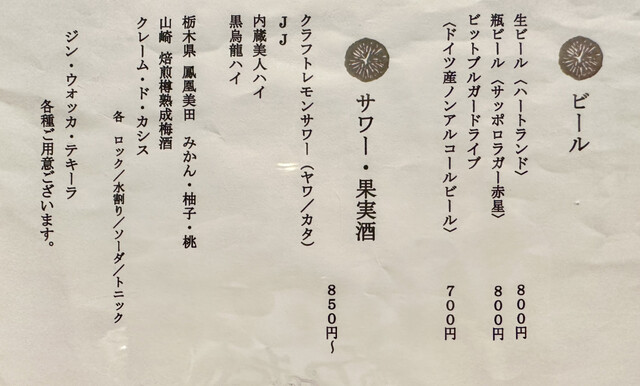 ビール
生ビール〈ハートランド〉 ８００円
瓶ビール〈サッポロラガー赤星〉 ８００円
ビットブルガードライブ
〈ドイツ産ノンアルコールビール〉 ７００円
サワー・果実酒
８５０円〜
クラフトレモンサワー（ヤワ／カタ）
ＪＪ
内蔵美人ハイ
黒烏龍ハイ
栃木県 鳳凰美田 みかん・柚子・桃
山崎 焙煎樽熟成梅酒
クレーム・ド・カシス
各 ロック／水割り／ソーダ／トニック
ジン・ウォッカ・テキーラ
各種ご用意ございます。